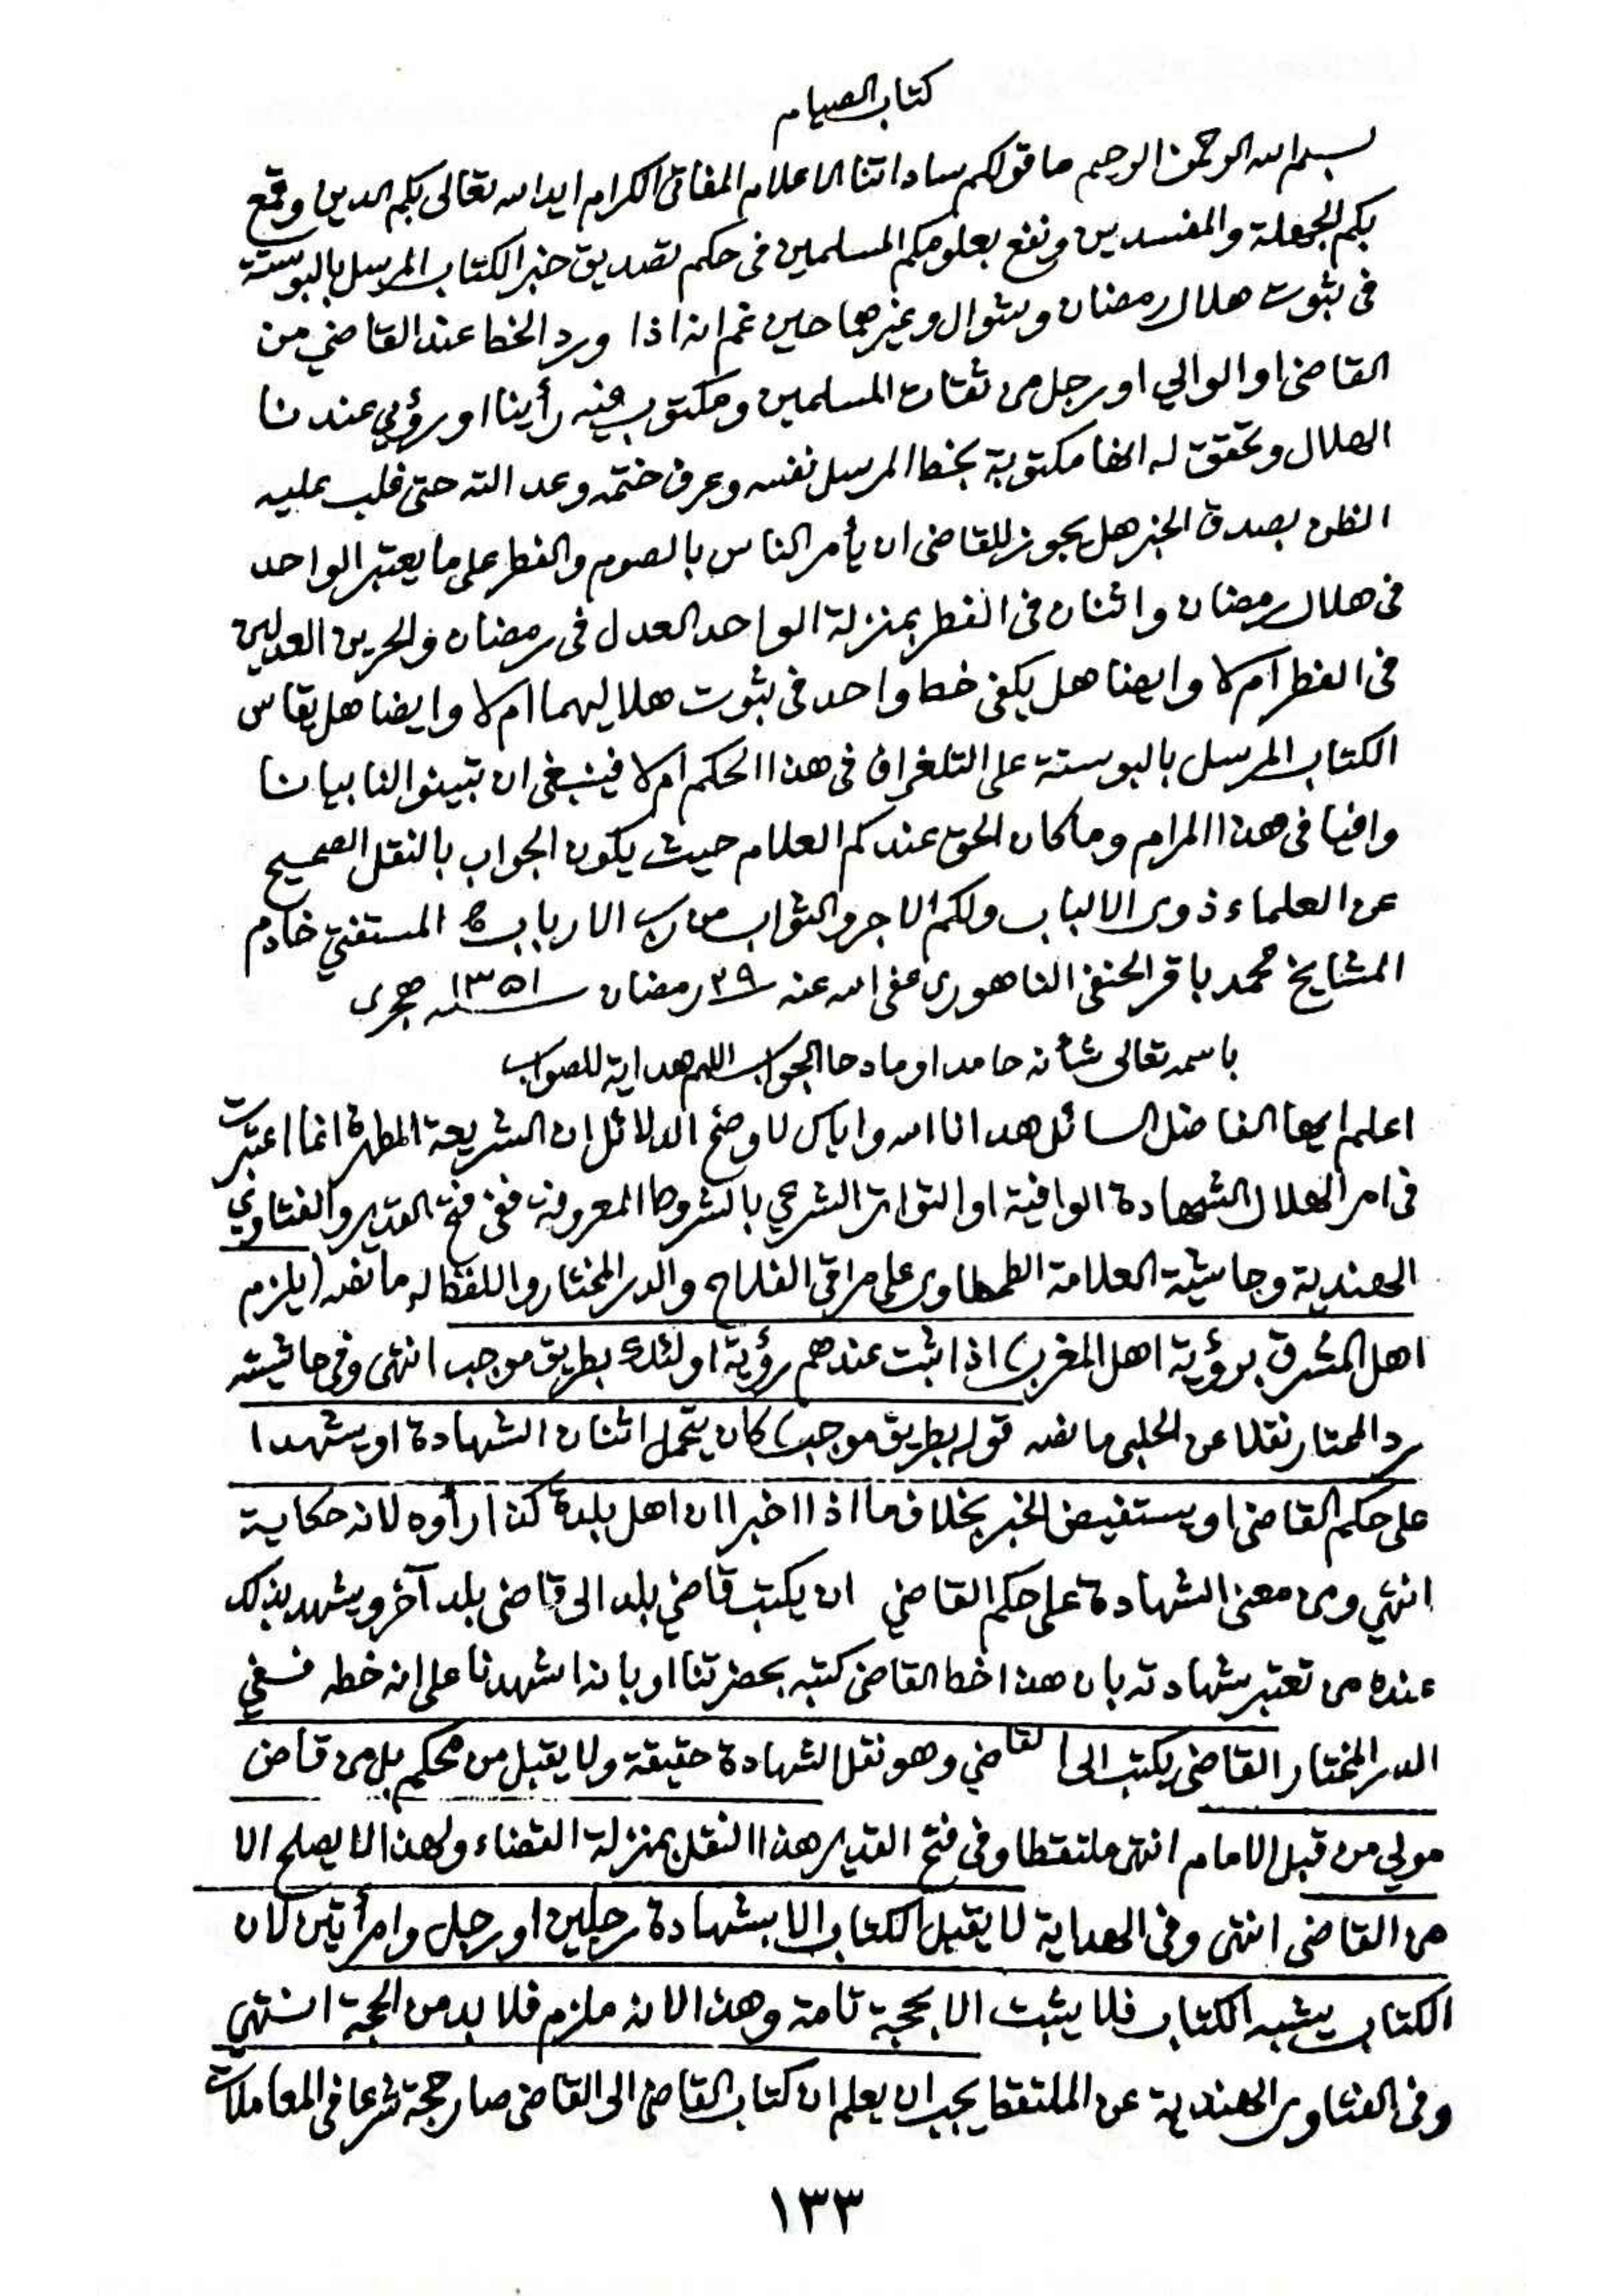 كتاب الصيام
بسم الله الرحمن الرحيم ما قولكم ساداتنا الاعلام المفاتى الكرام ايد الله تعالى بكم الدين وقمع
بكم الجهلة والمفسدين ونفع بعلومكم المسلمين فى حكم تصديق خبر الكتاب المرسل بالبوستة
فى ثبوت هلال رمضان وشوال وغيرهما حين غم انه اذا ورد الخط عند القاضي من
القاضى او الوالي او رجل من ثقات المسلمين ومكتوب فيه رأينا او رؤي عندنا
الهلال وتحقق له انها مكتوبة بخط المرسل نفسه وعرف ختمه وعدالته حتى غلب عليه
الظن بصدق الخبر هل يجوز للقاضى ان يأمر الناس بالصوم والفطر على ما يعتبر الواحد
فى هلال رمضان واثنان فى الفطر بمنزلة الواحد العدل فى رمضان والحرين العدلين
فى الفطر ام لا وايضا هل يكفى خط واحد فى ثبوت هلاليهما ام لا وايضا هل يقاس
الكتاب المرسل بالبوستة على التلغراف فى هذا الحكم ام لا فينبغى ان تبينوا لنا بيانا
وافيا فى هذا المرام وما كان الحق عندكم العلام حيث يكون الجواب بالنقل الصحيح
عن العلماء ذوى الالباب ولكم الاجر والثواب من رب الارباب المستفتي خادم
المشايخ محمد باقر الحنفى الناهورى عفى الله عنه ٢٩ رمضان ١٣٥١ هجرى
باسمه تعالى شأنه حامدا ومادحا الجواب اللهم هداية للصواب
اعلم ايها الفاضل السائل هدانا الله واياك لاوضح الدلائل ان الشريعة المطهرة انما اعتبرت
فى امر الهلال الشهادة الوافية او التواتر الشرعي بالشروط المعروفة ففى فتح القدير والفتاوي
الهندية وحاشية العلامة الطحطاوى على مراقى الفلاح والدر المختار واللفظ له ما نصه (يلزم
اهل المشرق برؤية اهل المغرب) اذا ثبت عندهم رؤية اولئك بطريق موجب انتهى وفى حاشيته
رد المحتار نقلا عن الحلبى ما نصه قوله بطريق موجب) كان يتحمل اثنان الشهادة او يشهدا
على حكم القاضى او يستفيض الخبر بخلاف ما اذا اخبرا ان اهل بلدة كذا رأوه لانه حكاية
انتهي ومن معنى الشهادة على حكم القاضي ان يكتب قاضي بلد الى قاضى بلد آخر ويشهد بذلك
عنده من تعتبر شهادته بان هذا خط القاضى كتبه بحضرتنا او بانه اشهدنا على انه خطه ففي
الدر المختار القاضى يكتب الى القاضي وهو نقل الشهادة حقيقة ولا يقبل من محكم بل من قاض
مولي من قبل الامام انتهى ملتقطا وفى فتح القدير هذا النقل بمنزلة القضاء ولهذا لا يصلح الا
من القاضى انتهى وفى الهداية لا يقبل الكتاب الا بشهادة رجلين او رجل وامرأتين لان
الكتاب يشبه الكتاب فلا يثبت الا بحجة تامة وهذا لانه ملزم فلا بد من الحجة انتهي
وفى الفتاوى الهندية عن الملتقط يجب ان يعلم ان كتاب القاضى الى القاضى صار حجة شرعا فى المعاملات
١٣٣